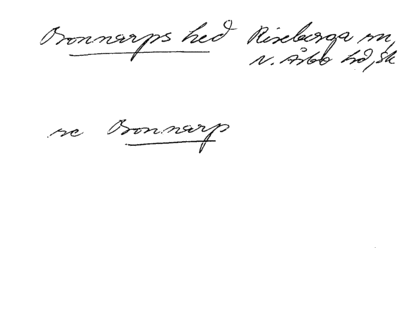 Bonnarps hed Riseberga sn,
N. Åsbo hd, Sk
se Bonnarp